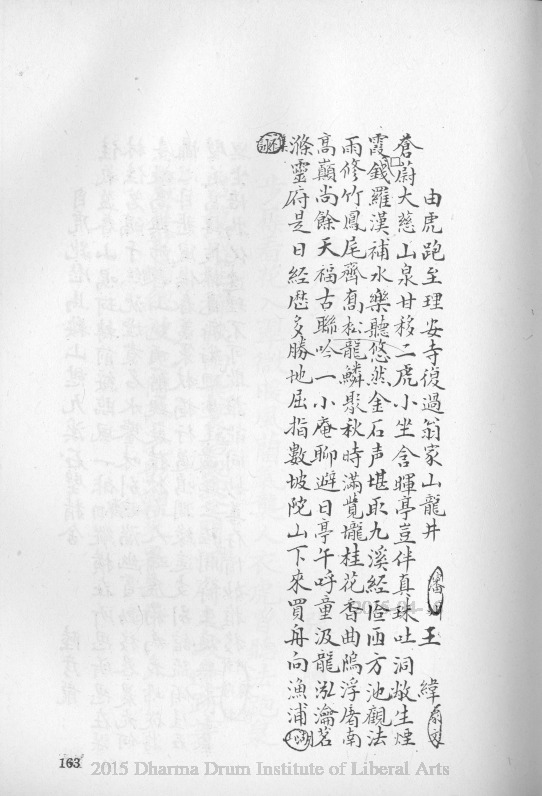 由虎跑至理安寺復過翁家山龍井 王緯
蒼蔚大慈山泉甘移二虎小坐含暉亭豈伴真珠吐洞敞生煙
霞錢羅漢補水樂聽悠然金石声堪取九溪經迤西方池觀法
雨修竹鳳尾齊髙松龍鱗聚秋時滿覺壠桂花香曲隝浮屠南
髙巔尚餘天福古聯吟一小庵聊避日亭午呼童汲龍泓瀹茗
滌靈府是日經歷多勝地屈指數坡陀山下來買舟向漁浦
163
2015 Dharma Drum Institute of Liberal Arts